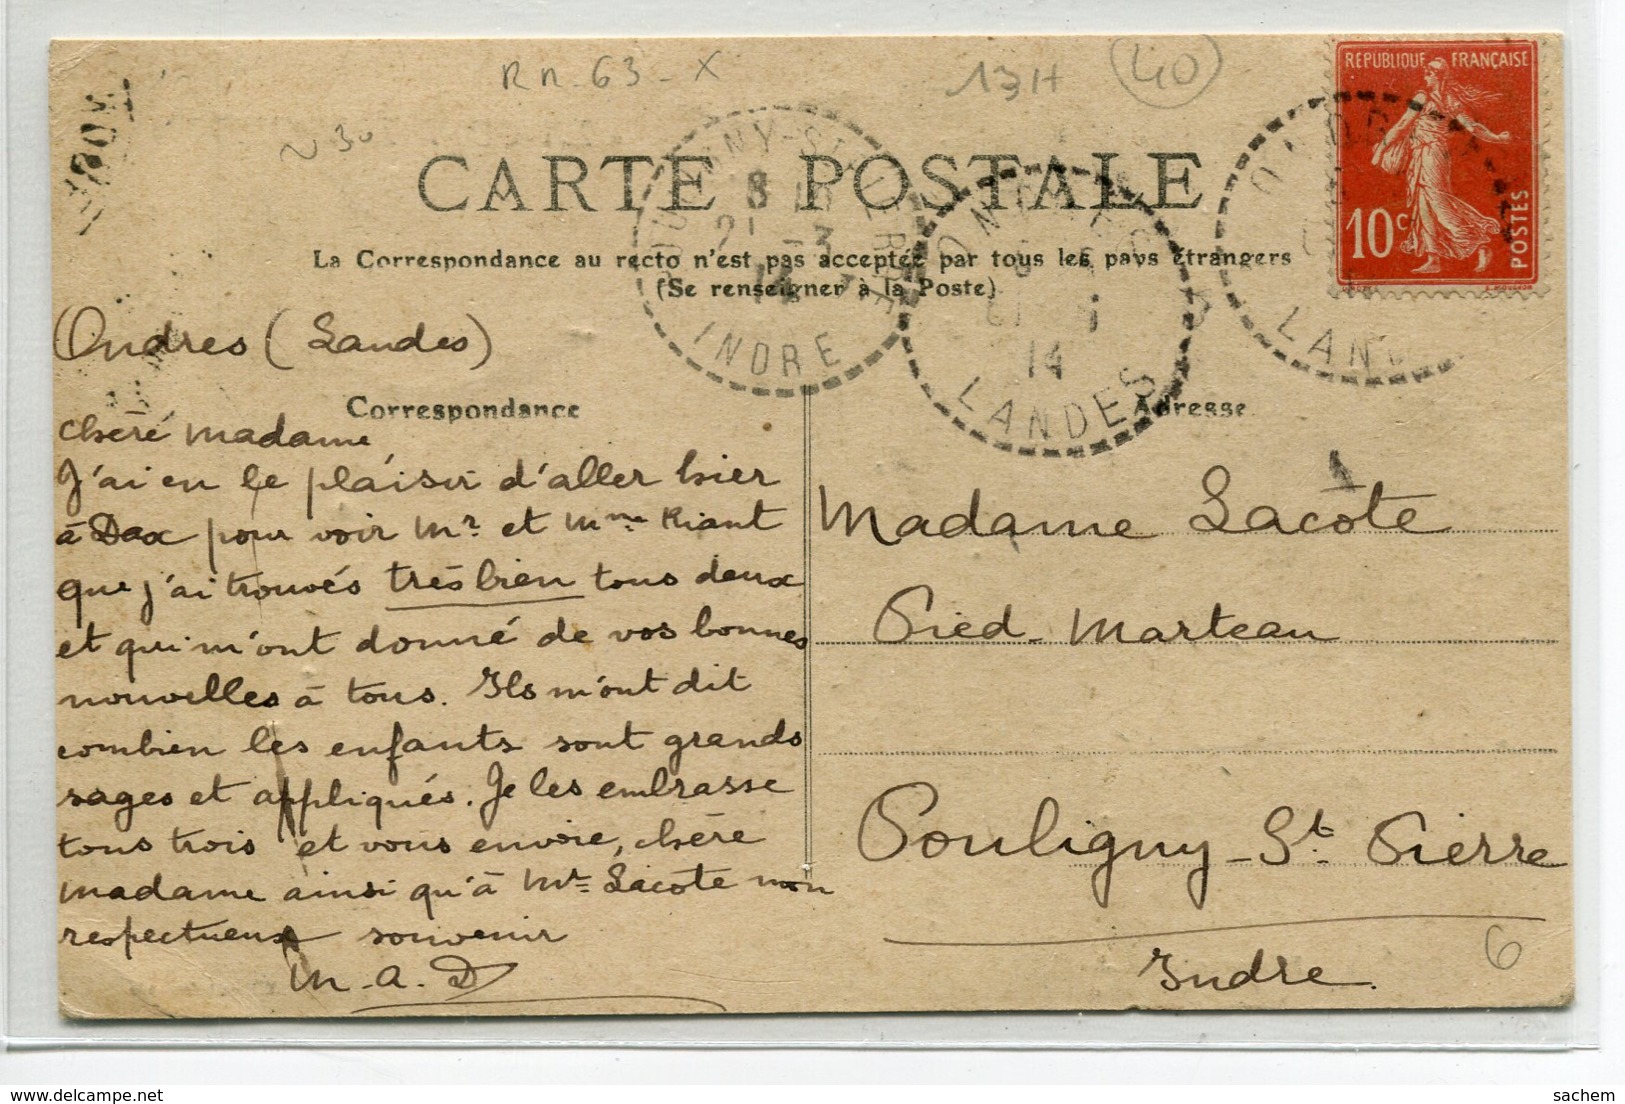 Rn. 63 - X
13H
40
~ 30
RÉPUBLIQUE FRANÇAISE
10c
POSTES
CARTE POSTALE
La Correspondance au recto n'est pas acceptée par tous les pays étrangers
(Se renseigner à la Poste)
INDRE
14
LANDES
Ondres (Landes)
Correspondance
Adresse
Chère Madame
J'ai eu le plaisir d'aller hier
à Dax pour voir Mr. et Mme Riant
que j'ai trouvés très bien tous deux
et qui m'ont donné de vos bonnes
nouvelles à tous. Ils m'ont dit
combien les enfants sont grands
sages et appliqués. Je les embrasse
tous trois et vous envoie, chère
Madame ainsi qu'à Mr Lacôte mon
respectueux souvenir
M.A.D
Madame Lacôte
Pied-Marteau
Pouligny-St. Pierre
Indre.
6
sachem